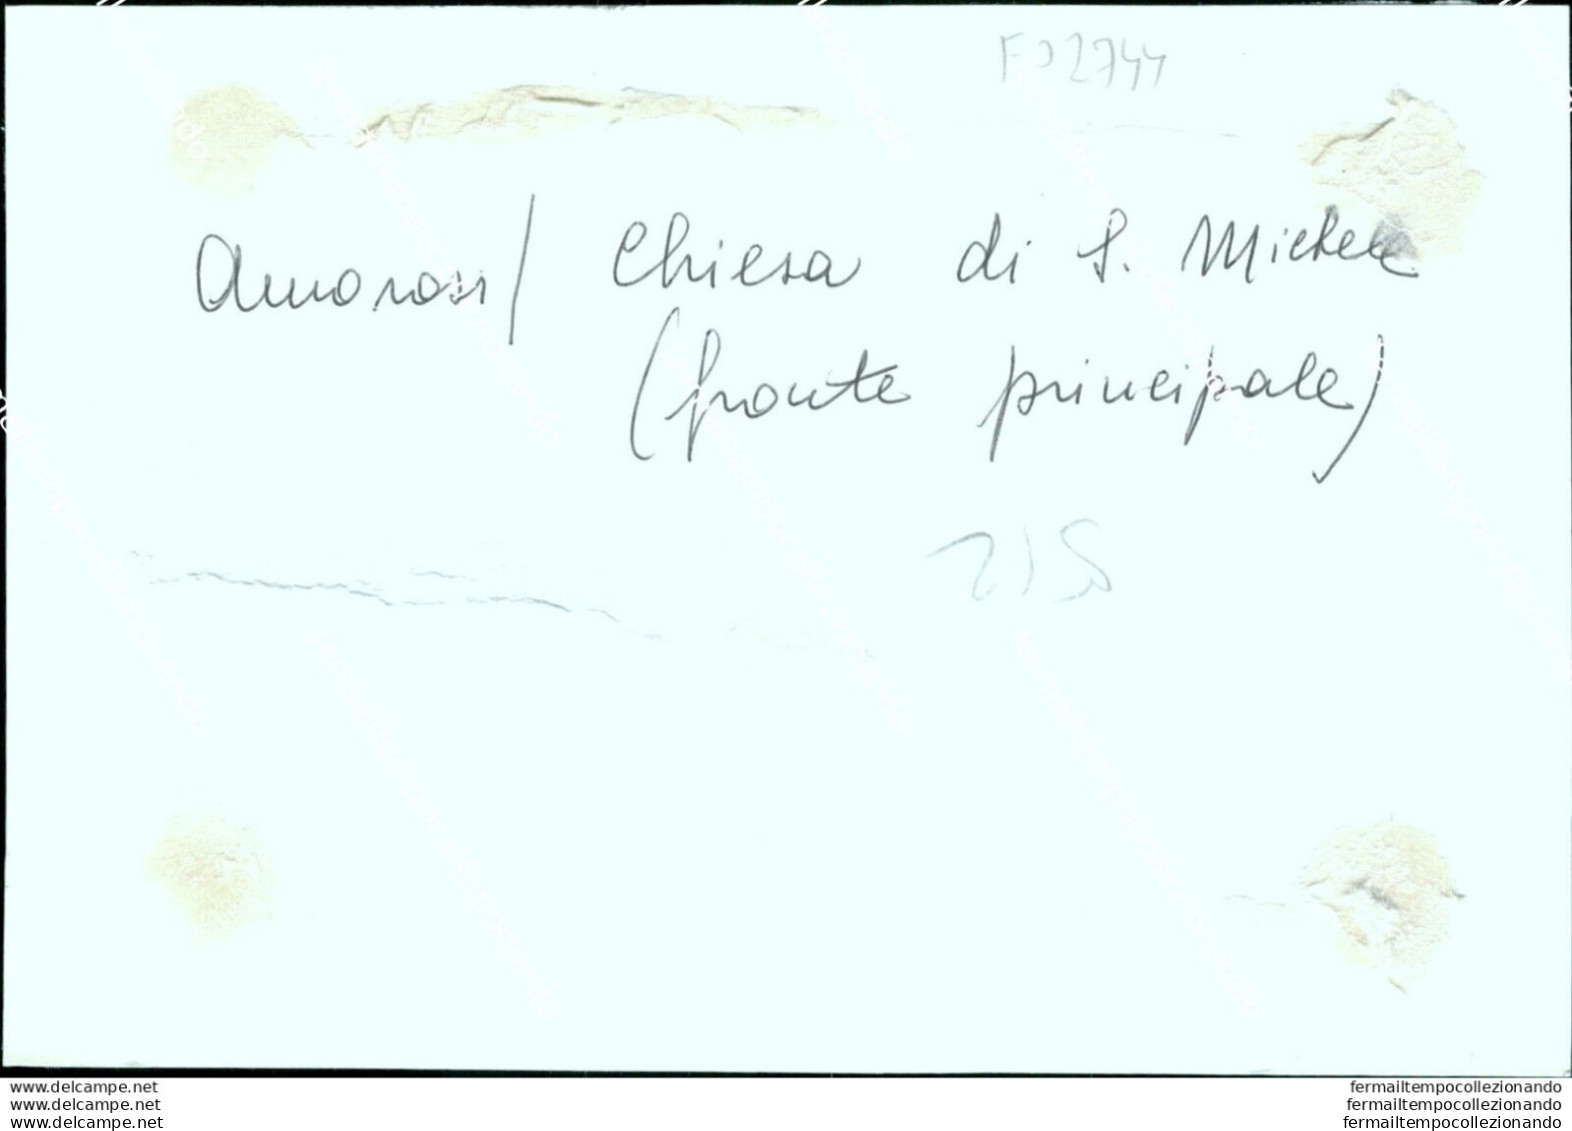 FO2744
Amorosi / Chiesa di S. Michele
(fronte principale)
215
www.delcampe.net
www.delcampe.net
www.delcampe.net
fermailtempocollezionando
fermailtempocollezionando
fermailtempocollezionando